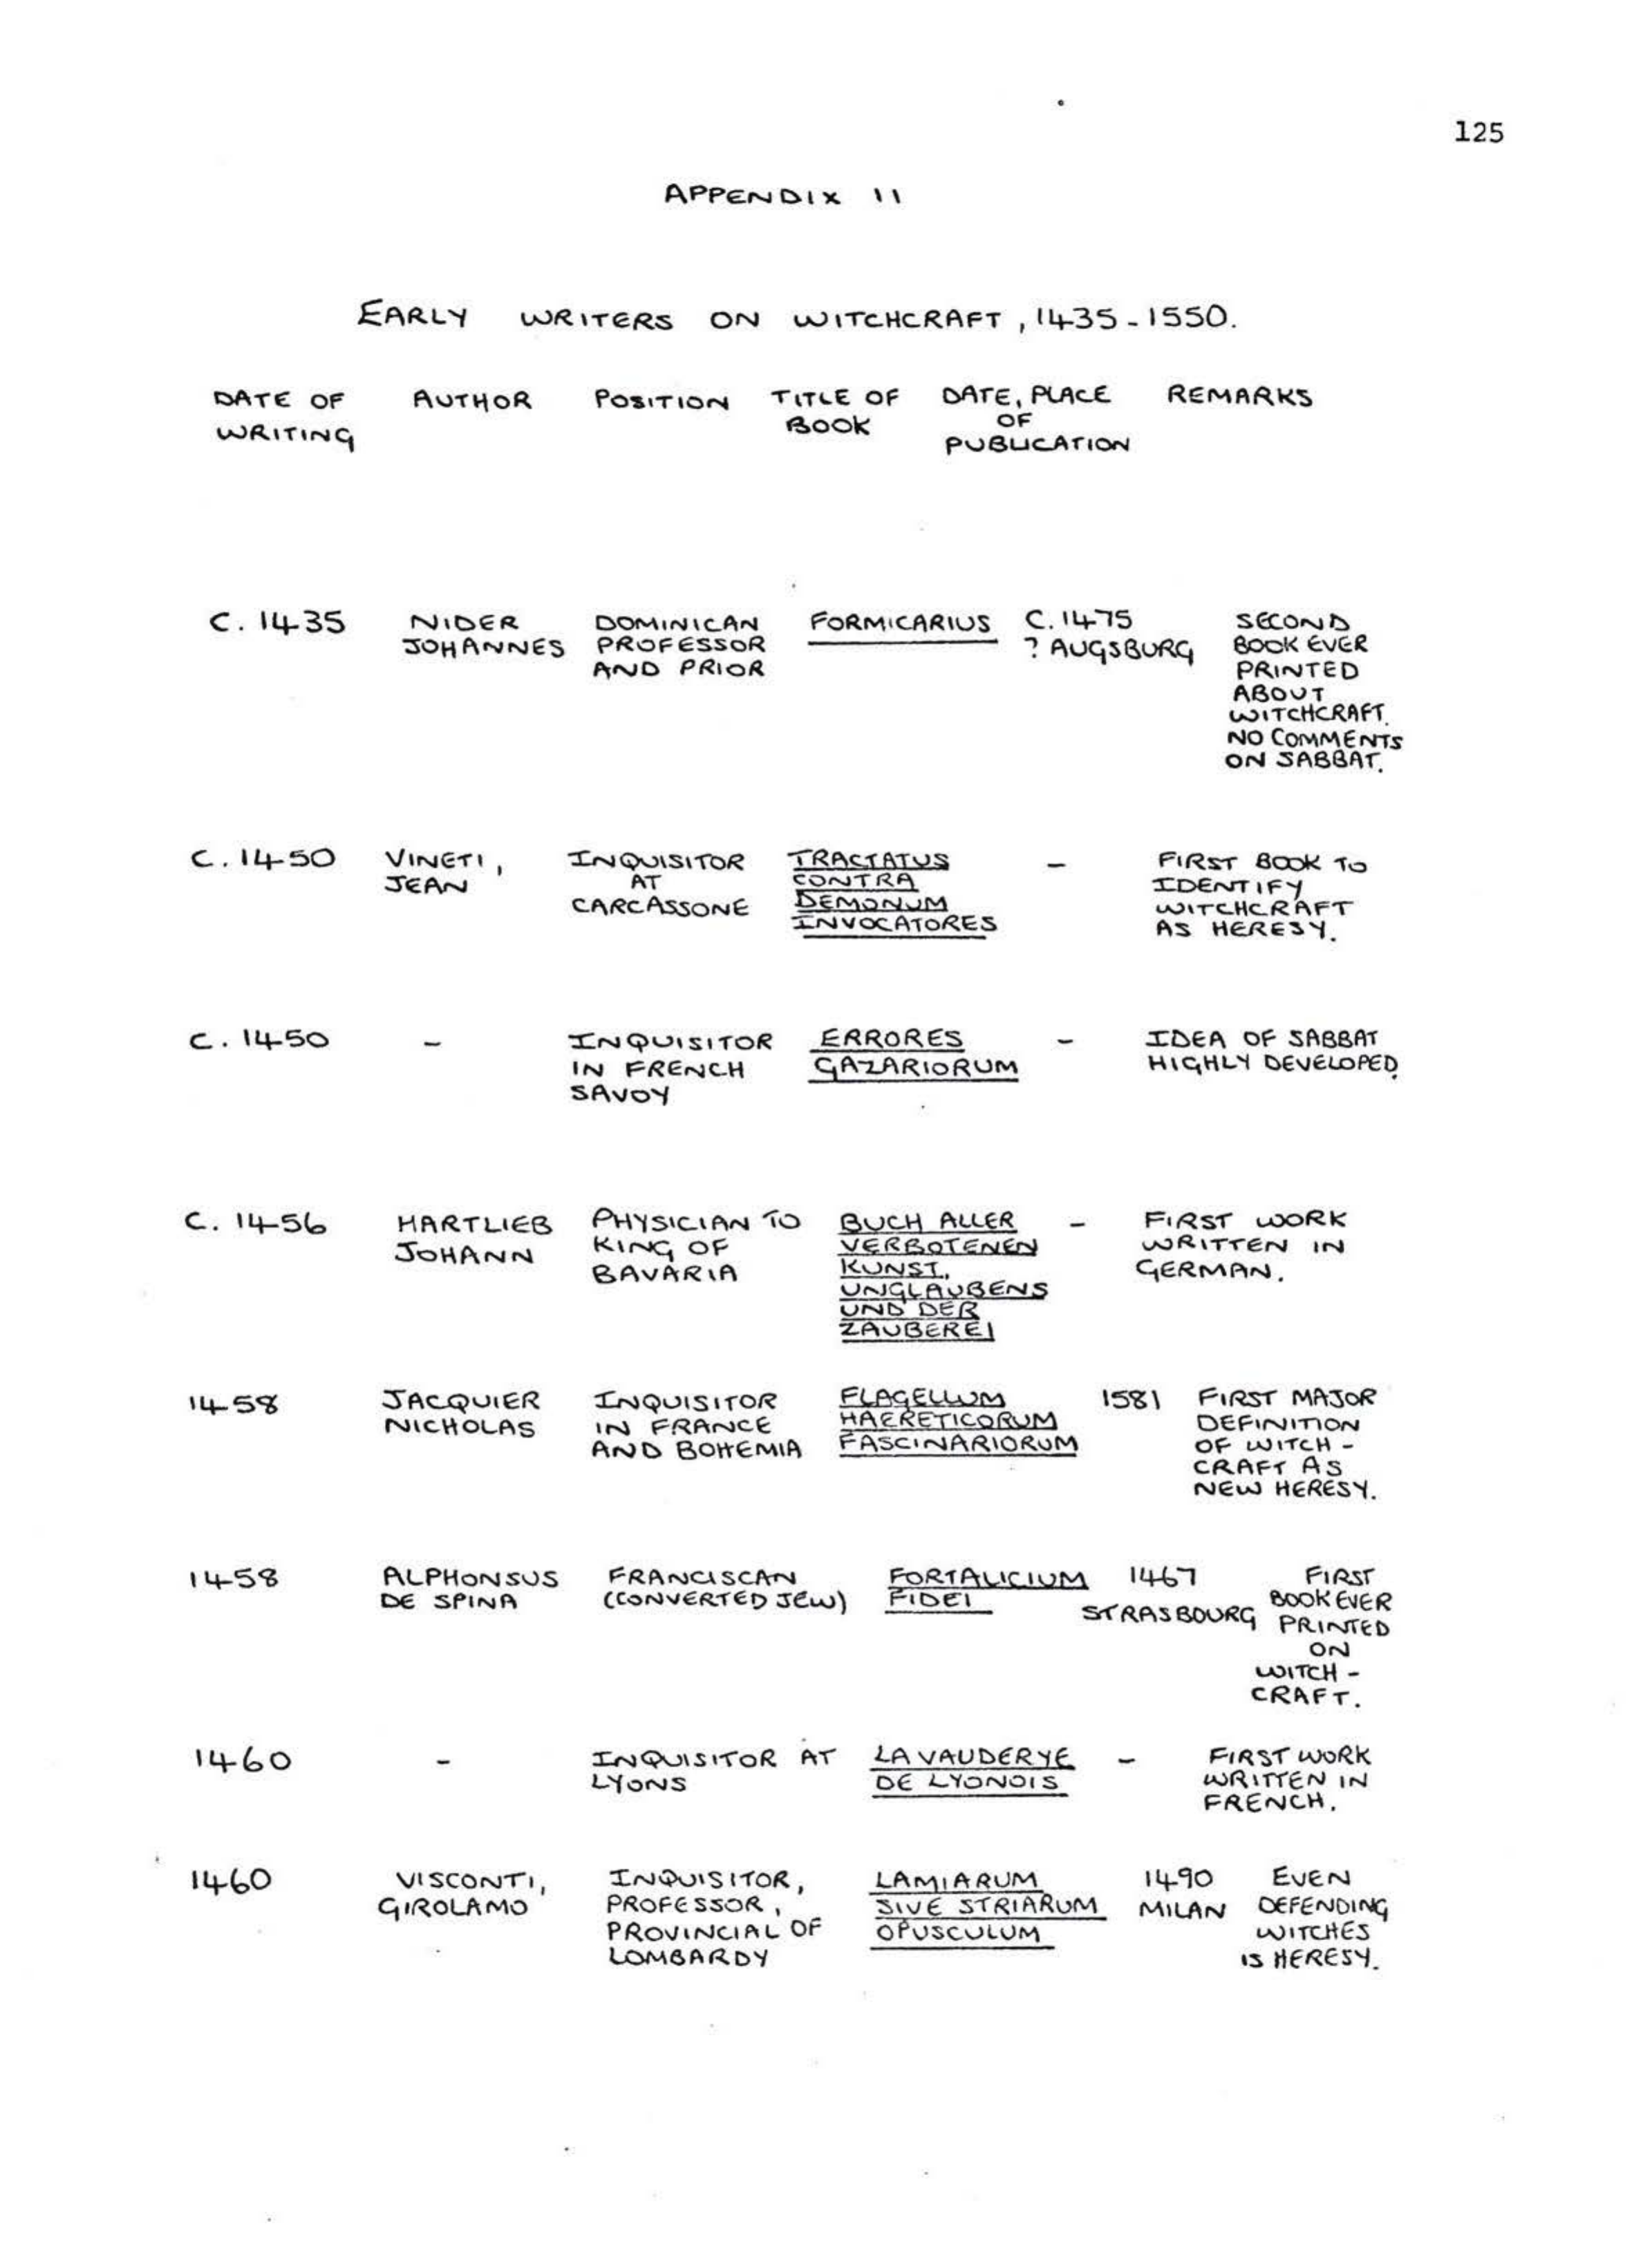 125
APPENDIX II
EARLY WRITERS ON WITCHCRAFT, 1435-1550.
DATE OF WRITING
AUTHOR
POSITION
TITLE OF BOOK
DATE, PLACE OF PUBLICATION
REMARKS
C. 1435
NIDER
JOHANNES
DOMINICAN
PROFESSOR
AND PRIOR
FORMICARIUS
C. 1475
? AUGSBURG
SECOND
BOOK EVER
PRINTED
ABOUT
WITCHCRAFT.
NO COMMENTS
ON SABBAT.
C. 1450
VINETI,
JEAN
INQUISITOR
AT
CARCASSONE
TRACTATUS
CONTRA
DEMONUM
INVOCATORES
-
FIRST BOOK TO
IDENTIFY
WITCHCRAFT
AS HERESY.
C. 1450
-
INQUISITOR
IN FRENCH
SAVOY
ERRORES
GAZARIORUM
-
IDEA OF SABBAT
HIGHLY DEVELOPED.
C. 1456
HARTLIEB
JOHANN
PHYSICIAN TO
KING OF
BAVARIA
BUCH ALLER
VERBOTENEN
KUNST,
UNGLAUBENS
UND DER
ZAUBEREI
-
FIRST WORK
WRITTEN IN
GERMAN.
1458
JACQUIER
NICHOLAS
INQUISITOR
IN FRANCE
AND BOHEMIA
FLAGELLUM
HAERETICORUM
FASCINARIORUM
1581
FIRST MAJOR
DEFINITION
OF WITCH-
CRAFT AS
NEW HERESY.
1458
ALPHONSUS
DE SPINA
FRANCISCAN
(CONVERTED JEW)
FORTALICIUM
FIDEI
1467
STRASBOURG
FIRST
BOOK EVER
PRINTED
ON
WITCH-
CRAFT.
1460
-
INQUISITOR AT
LYONS
LA VAUDERYE
DE LYONOIS
-
FIRST WORK
WRITTEN IN
FRENCH.
1460
VISCONTI,
GIROLAMO
INQUISITOR,
PROFESSOR,
PROVINCIAL OF
LOMBARDY
LAMIARUM
SIVE STRIARUM
OPUSCULUM
1490
MILAN
EVEN
DEFENDING
WITCHES
IS HERESY.